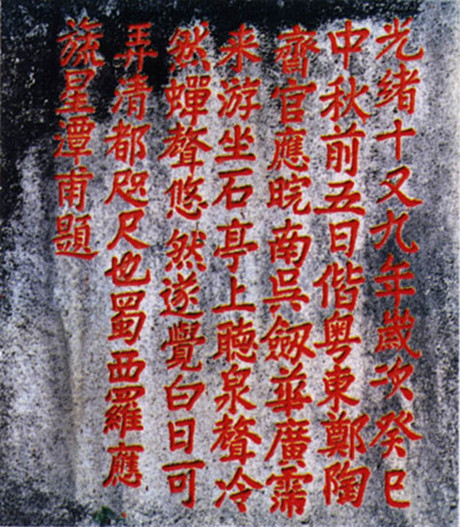 光緒十又九年歲次癸巳
中秋前五日偕粤東鄭陶
齋官應皖南吳劔華廣霈
来游坐石亭上聽泉聲冷
然蟬聲悠然遂覺白日可
昇清都咫尺也蜀西羅應
旒星潭甫題